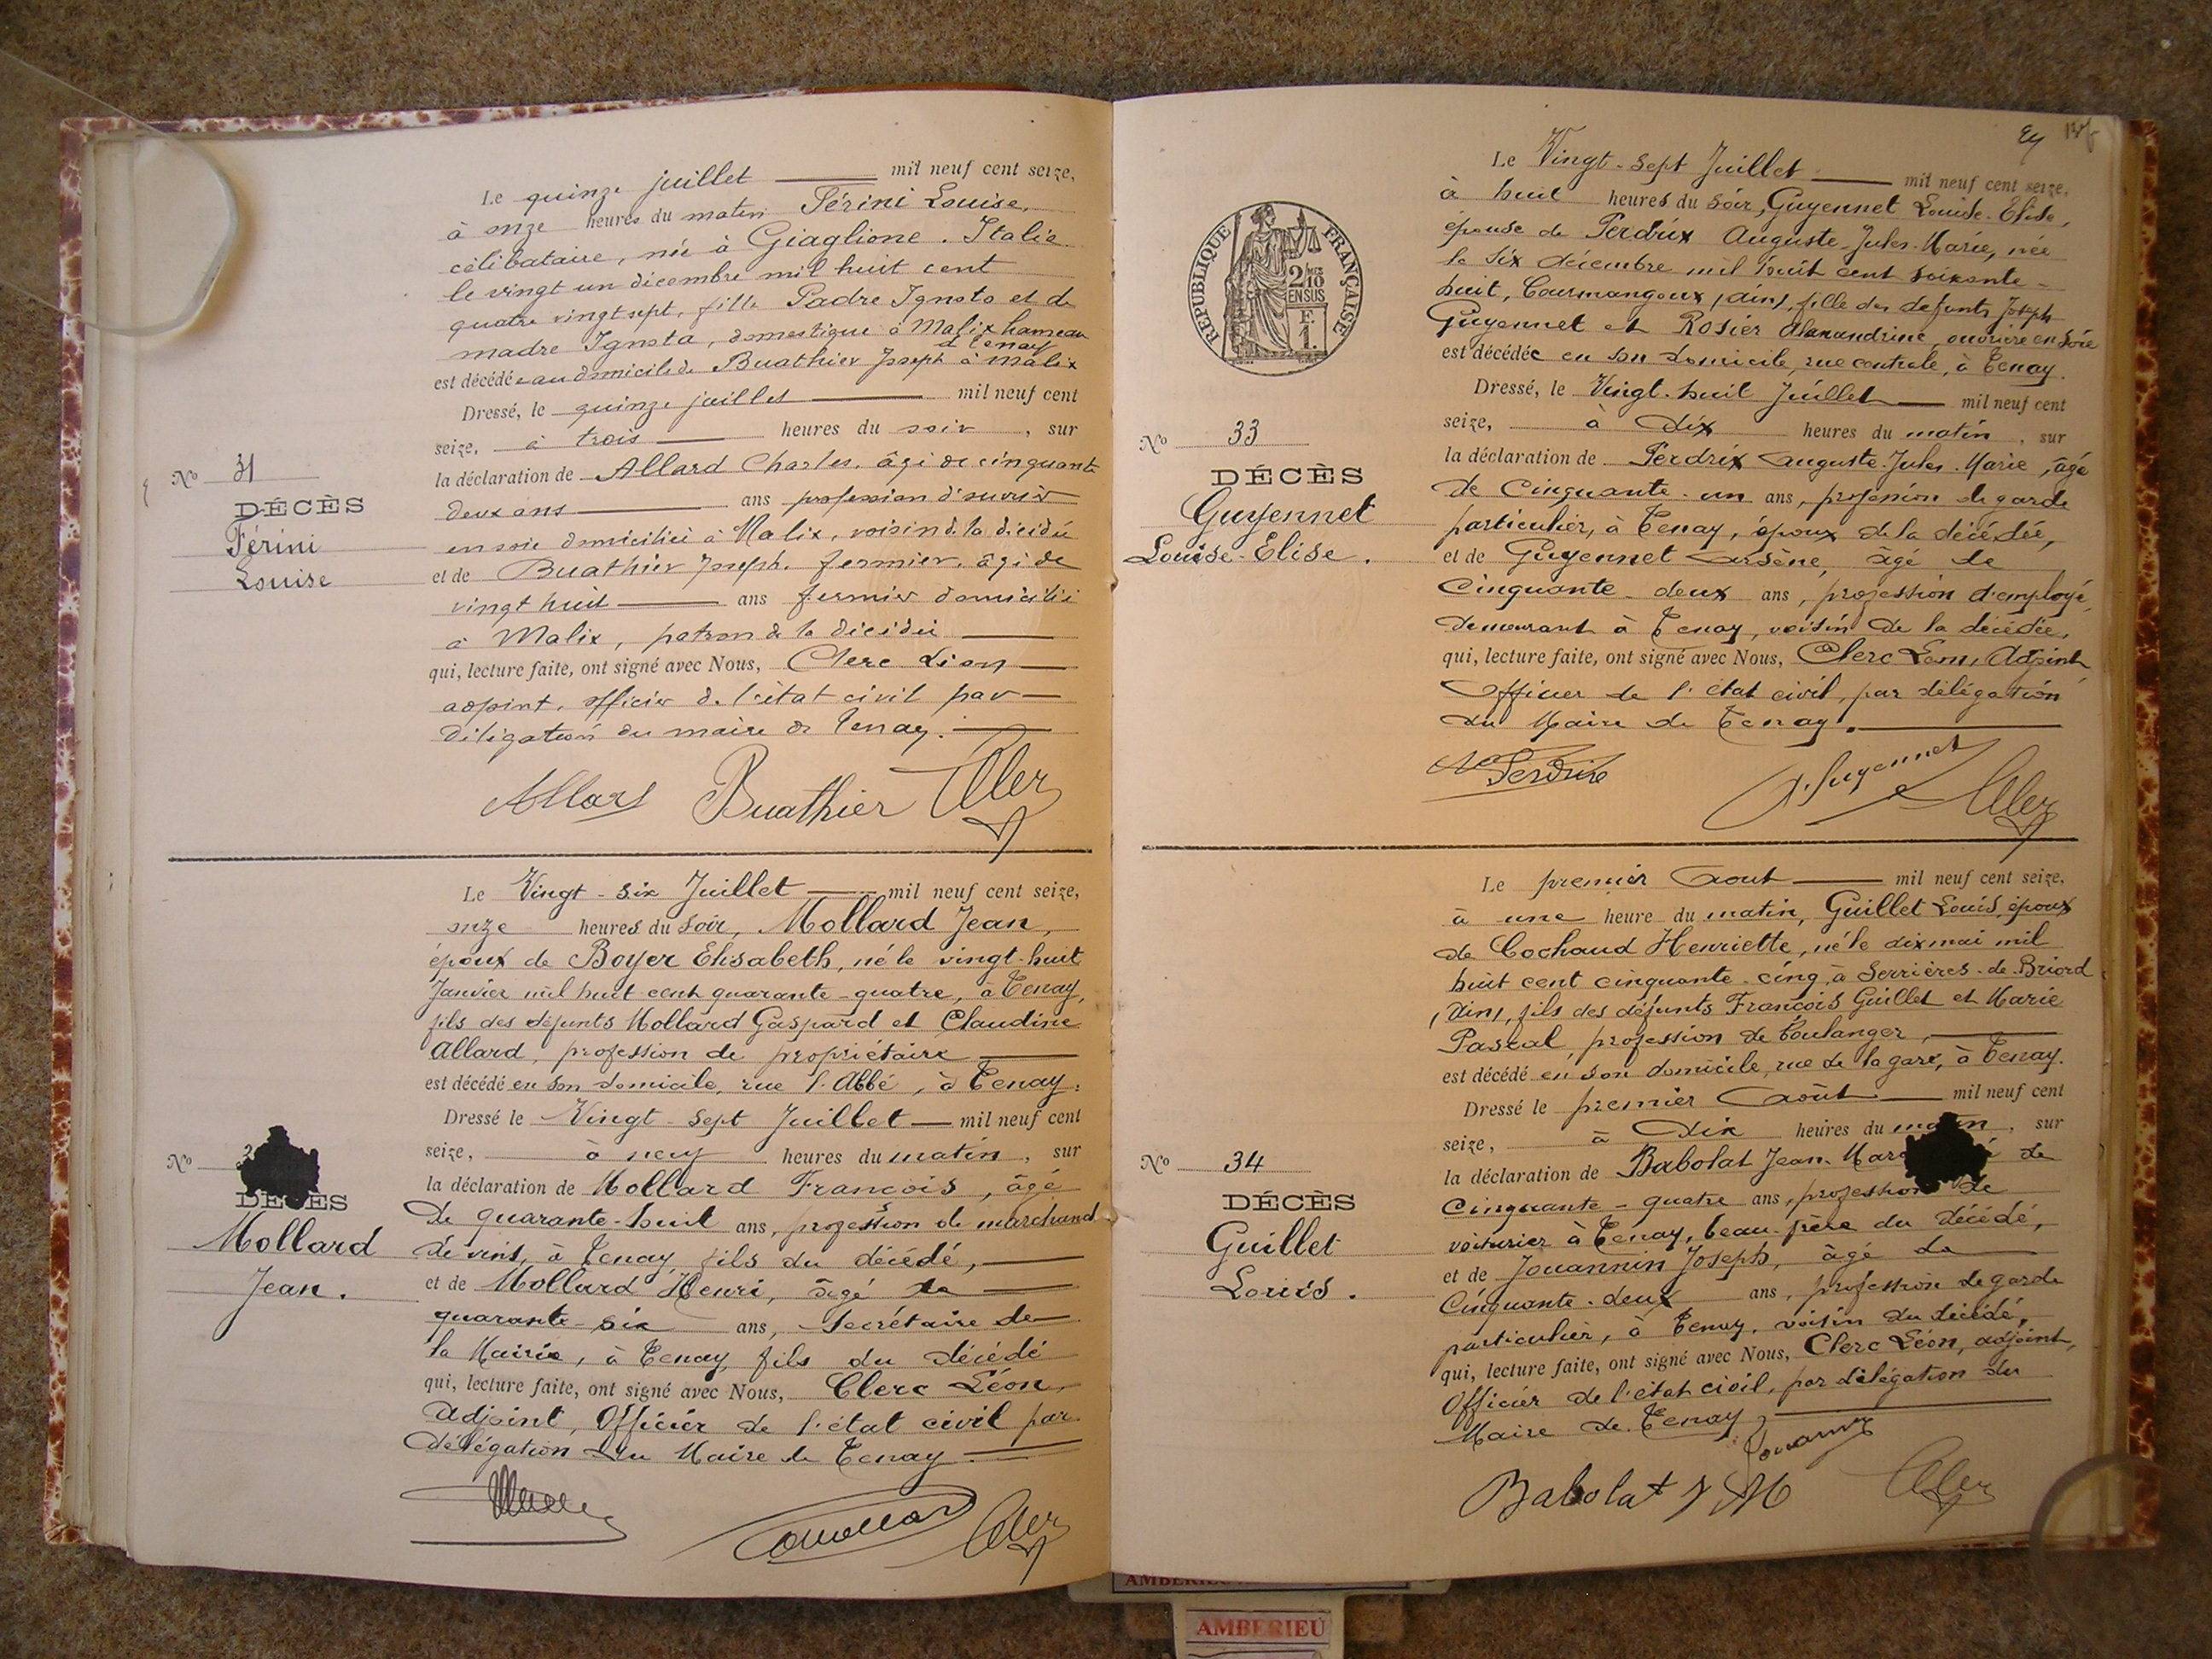 Le quinze juillet mil neuf cent seize,
à onze heures du matin Férini Louise,
célibataire, née à Giaglione. Italie
le vingt un décembre mil huit cent
quatre vingt sept, fille Padre Ignoto et de
madre Ignota, domestique à Malix hameau
de Tenay
est décédée au domicile de Buathier Joseph à Malix
Dressé, le quinze juillet mil neuf cent
seize, à trois heures du soir, sur
la déclaration de Allard Charles, âgé de cinquante
deux ans ans profession d'ouvrier
en soie domicilié à Malix, voisin de la décédée
et de Buathier Joseph. fermier. âgé de
vingt huit ans fermier domicilié
à Malix, patron de la décédée
qui, lecture faite, ont signé avec Nous, Clerc Léon
adjoint, officier de l'état civil par
délégation du maire de Tenay.
Allard Buathier Clerc
No 31
DÉCÈS
Férini
Louise
Le Vingt-six Juillet mil neuf cent seize,
onze heures du soir, Mollard Jean,
époux de Boyer Elisabeth, né le vingt-huit
Janvier mil huit cent quarante-quatre, à Tenay,
fils des défunts Mollard Gaspard et Claudine
Allard, profession de propriétaire
est décédé en son domicile, rue l'Abbé, à Tenay.
Dressé le Vingt-sept Juillet mil neuf cent
seize, à neuf heures du matin, sur
la déclaration de Mollard François, âgé
de quarante-huit ans, profession de marchand
de vins, à Tenay, fils du décédé,
et de Mollard Henri, âgé de
quarante-six ans, Secrétaire de
la Mairie, à Tenay, fils du décédé
qui, lecture faite, ont signé avec Nous, Clerc Léon,
Adjoint, Officier de l'état civil par
délégation du Maire de Tenay.
Mollard Clerc
No
DÉCÈS
Mollard
Jean.
RÉPUBLIQUE FRANÇAISE
2/10
EN SUS
F.
1.
Le Vingt-sept Juillet mil neuf cent seize,
à huit heures du soir, Guyennet Louise-Elise,
épouse de Perdrix Auguste-Jules-Marie, née
le six décembre mil huit cent soixante-
huit, Courmangoux (Ain), fille des defunts Joseph
Guyennet et Rosier Alexandrine, ouvrière en soie
est décédée en son domicile, rue centrale, à Tenay.
Dressé, le Vingt-huit Juillet mil neuf cent
seize, à dix heures du matin, sur
la déclaration de Perdrix Auguste-Jules-Marie, âgé
de Cinquante-un ans, profession de garde
particulier, à Tenay, époux de la décédée,
et de Guyennet Arsène, âgé de
Cinquante-deux ans, profession d'employé,
demeurant à Tenay, voisin de la décédée,
qui, lecture faite, ont signé avec Nous, Clerc Léon, Adjoint
Officier de l'état civil, par délégation
du Maire de Tenay.
Perdrix Guyennet Clerc
No 33
DÉCÈS
Guyennet
Louise-Elise.
Le premier Aout mil neuf cent seize,
à une heure du matin, Guillet Louis, époux
de Cochaud Henriette, né le dix mai mil
huit cent cinquante-cinq, à Serrières-de-Briord
(Ain), fils des défunts François Guillet et Marie
Pascal, profession de boulanger,
est décédé en son domicile, rue de la gare, à Tenay.
Dressé le premier Août mil neuf cent
seize, à dix heures du matin, sur
la déclaration de Babolat Jean-Mar de
Cinquante-quatre ans, profession de
voiturier à Tenay, beau-frère du décédé,
et de Jouannin Joseph, âgé de
Cinquante-deux ans, profession de garde
particulier, à Tenay, voisin du décédé,
qui, lecture faite, ont signé avec Nous, Clerc Léon, adjoint,
Officier de l'état civil, par délégation du
Maire de Tenay
Babolat J M Clerc
No 34
DÉCÈS
Guillet
Louis.
AMBERIEU